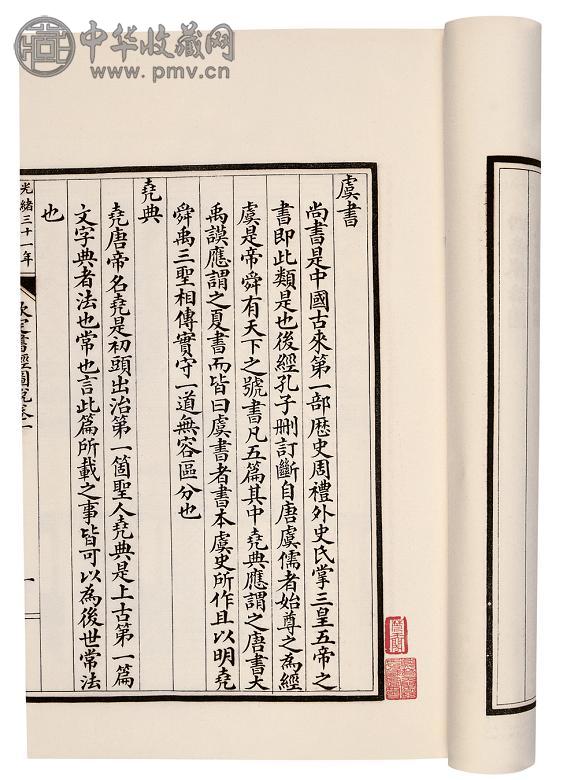 中华收藏网
www.pmv.cn
虞書
尚書是中國古來第一部歷史周禮外史氏掌三皇五帝之
書即此類是也後經孔子刪訂斷自唐虞儒者始尊之為經
虞是帝舜有天下之號書凡五篇其中堯典應謂之唐書大
禹謨應謂之夏書而皆曰虞書者書本虞史所作且以明堯
舜禹三聖相傳實守一道無容區分也
堯典
堯唐帝名堯是初頭出治第一箇聖人堯典是上古第一篇
文字典者法也常也言此篇所載之事皆可以為後世常法
也
光緒三十一年
欽定書經圖說卷一
一